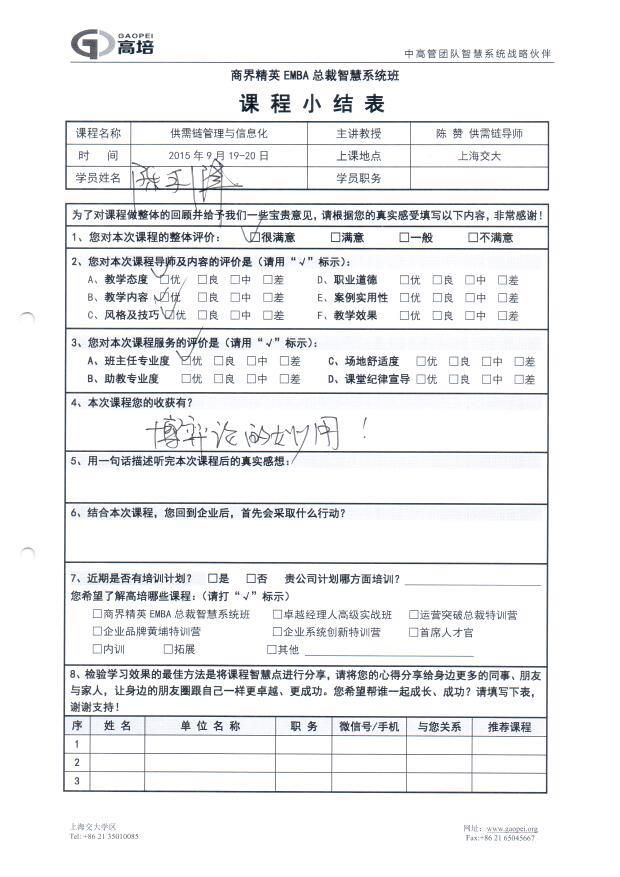 GAOPEI
高培
中高管团队智慧系统战略伙伴
商界精英 EMBA 总裁智慧系统班
课 程 小 结 表
课程名称 供需链管理与信息化 主讲教授 陈 赞 供需链导师
时 间 2015 年 9 月 19-20 日 上课地点 上海交大
学员姓名 学员职务
为了对课程做整体的回顾并给予我们一些宝贵意见，请根据您的真实感受填写以下内容，非常感谢！
1、您对本次课程的整体评价： √□很满意 □满意 □一般 □不满意
2、您对本次课程导师及内容的评价是（请用“√”标示）：
A、教学态度 √□优 □良 □中 □差 D、职业道德 □优 □良 □中 □差
B、教学内容 √□优 □良 □中 □差 E、案例实用性 □优 □良 □中 □差
C、风格及技巧 √□优 □良 □中 □差 F、教学效果 □优 □良 □中 □差
3、您对本次课程服务的评价是（请用“√”标示）：
A、班主任专业度 √□优 □良 □中 □差 C、场地舒适度 □优 □良 □中 □差
B、助教专业度 □优 □良 □中 □差 D、课堂纪律宣导 □优 □良 □中 □差
4、本次课程您的收获有？
博弈论的妙用！
5、用一句话描述听完本次课程后的真实感想：
6、结合本次课程，您回到企业后，首先会采取什么行动？
7、近期是否有培训计划？ □是 □否 贵公司计划哪方面培训？
您希望了解高培哪些课程：（请打“√”标示）
□商界精英 EMBA 总裁智慧系统班 □卓越经理人高级实战班 □运营突破总裁特训营
□企业品牌黄埔特训营 □企业系统创新特训营 □首席人才官
□内训 □拓展 □其他
8、检验学习效果的最佳方法是将课程智慧点进行分享，请将您的心得分享给身边更多的同事、朋友
与家人，让身边的朋友圈跟自己一样更卓越、更成功。您希望帮谁一起成长、成功？请填写下表，
谢谢支持！
序 姓 名 单 位 名 称 职 务 微信号/手机 与您关系 推荐课程
1
2
3
上海交大学区 网址：www.gaopei.org
Tel: +86 21 35010085 Fax:+86 21 65045667